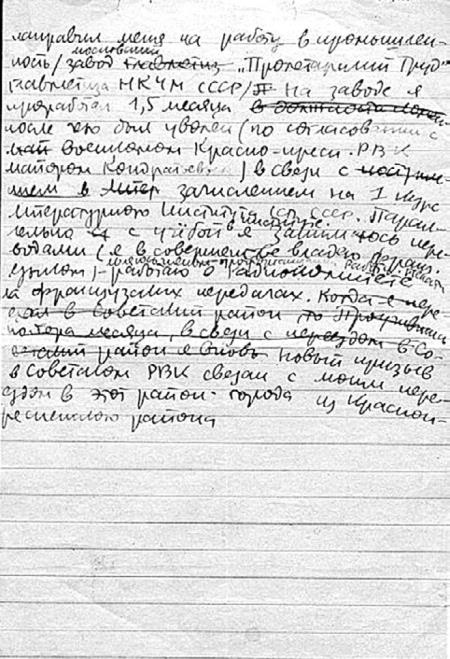 направил меня на работу в промышлен-
московский
ность/завод главметиз „Пролетарский Труд"
главметиза НКЧМ СССР/ П На заводе я
проработал 1,5 месяца в должности
после чего был уволен (по согласовании с
май военкомом Красно-преси. РВК
майором Кондратьевым) в связи с поступле-
нием в Литер зачислением на 1 курс
литературного Института ССП СССР. Парал-
в институте
лельно с учёбой я занимаюсь пере-
водами (я в совершенстве владею франц.
языком) – работаю в Радиокомитете
на французских передачах. Когда я пере-
ехал в Советский район
полтора месяца, в связи с переездом в Со-
ветский район я вновь Новый призыв
в Советском РВК связан с моим пере-
ездом в этот район города из Красно-
пресненского района